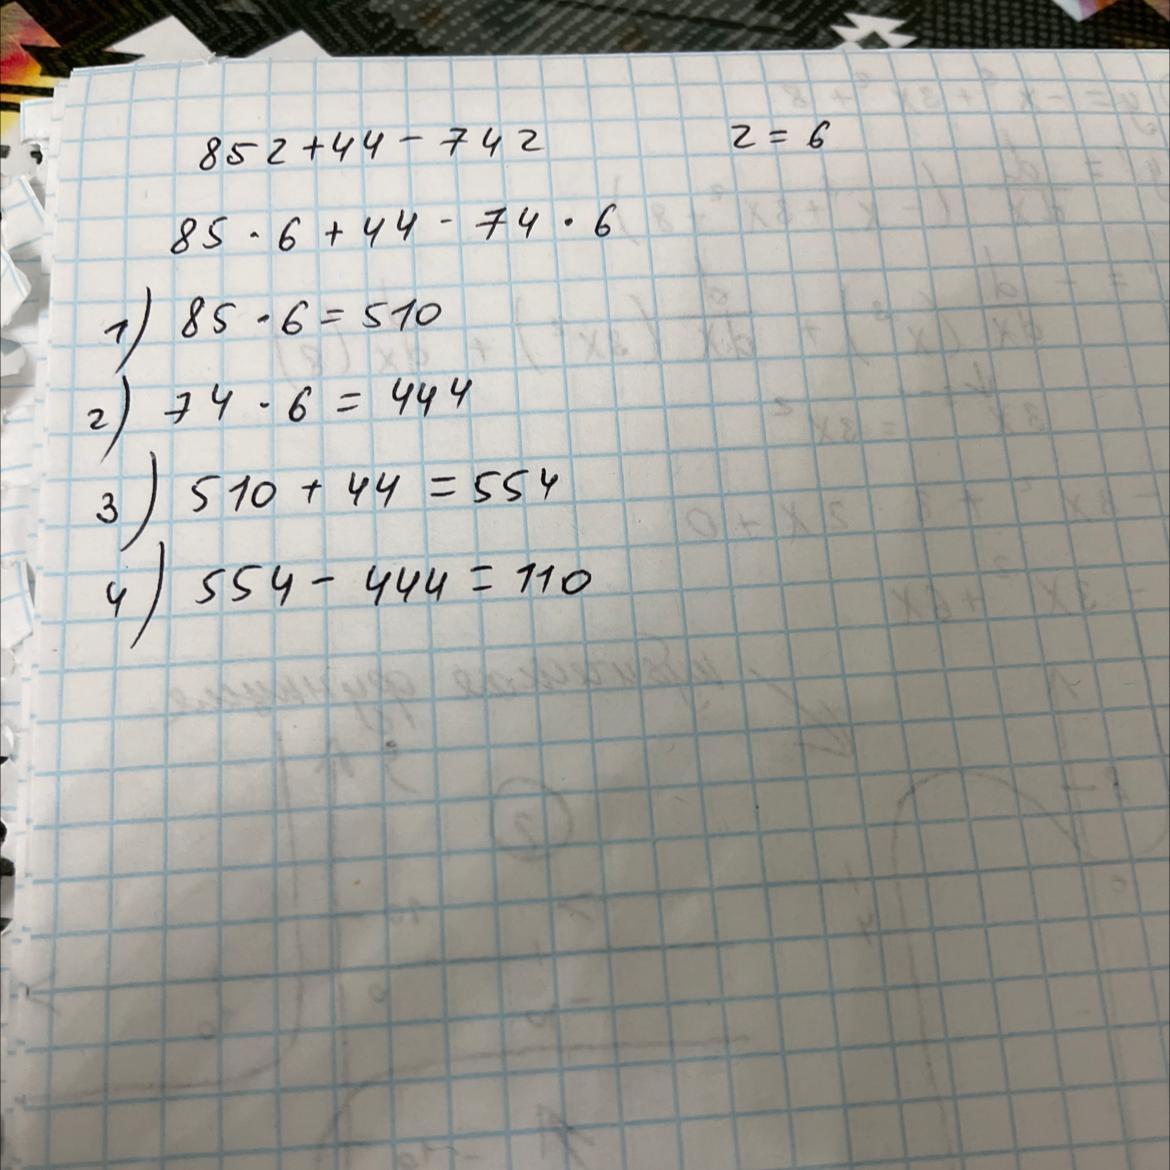 85z+44-74z z=6
85·6+44-74·6
1) 85·6=510
2) 74·6=444
3) 510+44=554
4) 554-444=110